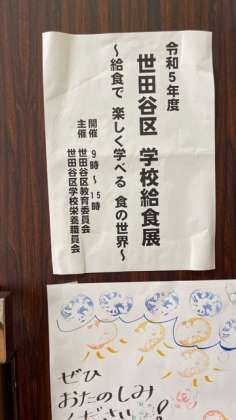 令和5年度
世田谷区 学校給食展
～給食で 楽しく学べる 食の世界～
開催 9時～15時
主催 世田谷区教育委員会
世田谷区学校栄養職員会
ぜひ
おたのしみ
ください!